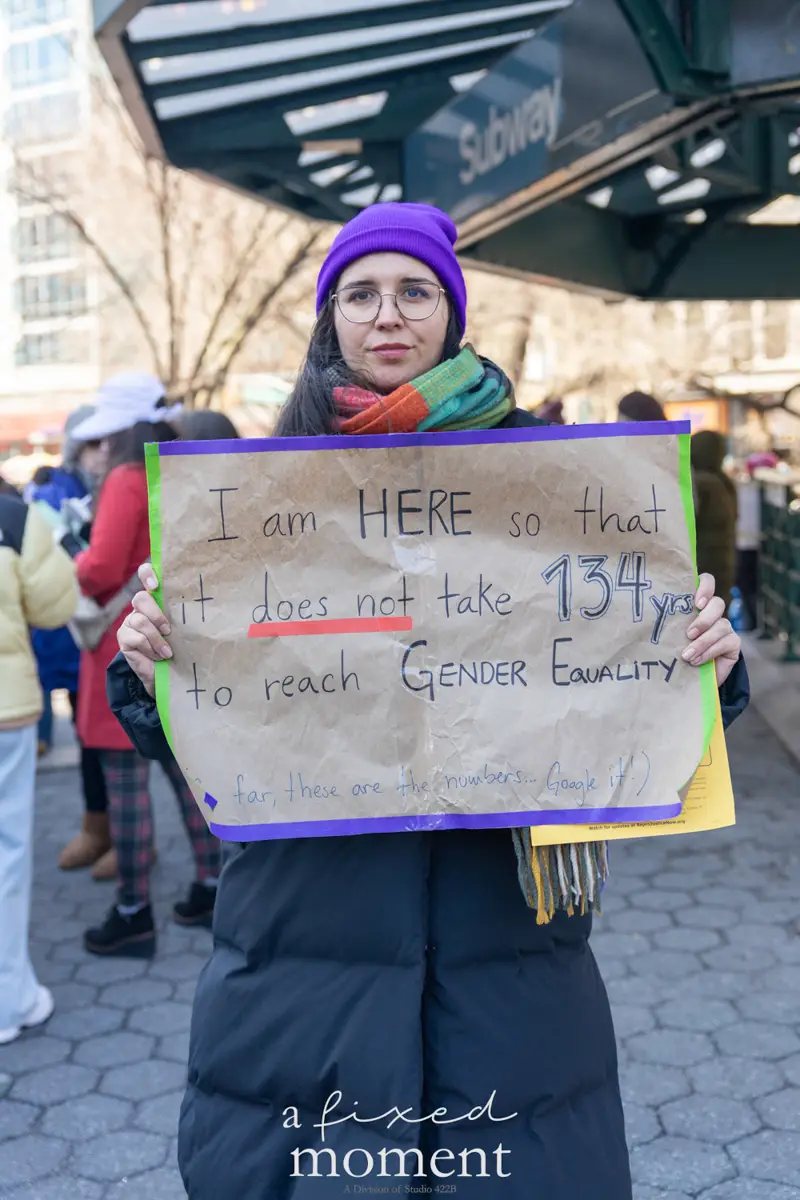 Subway
I am HERE so that
it does not take 134yrs
to reach GENDER EQUALITY
far, these are the numbers... Google it!)
a fixed
moment
A Division of Studio 422B